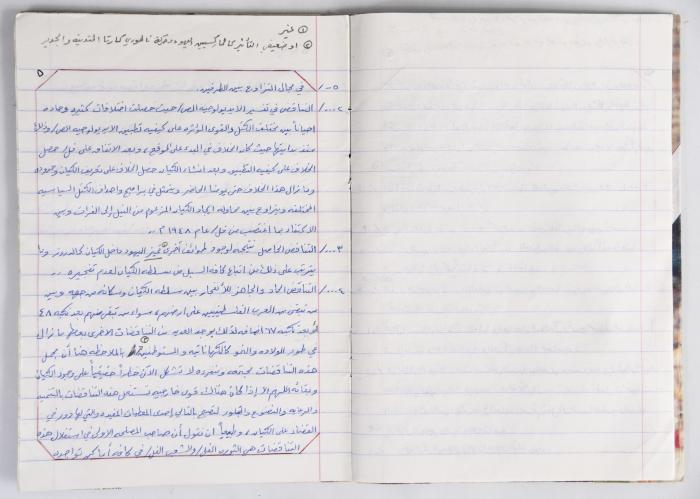 ① غير
② او ضعيف التأثير كالماركسيين اليهود وحركة ناطوري كارتا المتدينة والجدير
٥
٥- / في مجال التزاوج بين الطرفين.
٢٠٠٠/ التناقض في تفسير الايديولوجيه الص/ حيث حصلت اختلافات كثيره وحاده
احياناً بين مختلف الكتل والقوى المؤثره على كيفيه تطبيق الايديولوجيه الص/ وذلك
منذ بدايتها حيث كان الخلاف في البدء على الموقع، وبعد الاتفاق على فل/ حصل
الخلاف على كيفيه التطبيق وبعد انشاء الكيان حصل الخلاف على تعريف الكيان وحدوده
وما زال هذا الخلاف حتى يومنا الحاضر ويتمثل في برامج واهداف الكتل السياسيه
المختلفه ويتراوح بين محاوله ايجاد الكيان المزعوم من النيل إلى الفرات وبين
الاكتفاء بما اغتصب من فل/ عام ١٩٤٨م ..
٣٠٠٠/ التناقض الحاصل نتيجه لوجود طوائف أخرى غير اليهود داخل الكيان كالدروز وما
يترتب على ذلك من اتباع كافه السبل من سلطه الكيان لعدم تفجيره ..
٤٠٠٠/ التناقض الحاد والجاهز للأنفجار بين سلطه الكيان وسكانه من جهه وبين
من تبقى من العرب الفلسطينيين على ارضهم، سواء من تبقى منهم بعد نكبه ٤٨
أو بعد نكبه ٦٧ اضافه لذلك يوجد العديد من التناقضات الاخرى بعضها ما زال
في طور الولاده والنمو كالكهاناتيه والمستوطنين ② بالملاحظه هنا أن مجمل
هذه التناقضات مجتمعه ومنفرده لا تشكل الآن خطراً حقيقياً على وجود الكيان
وبقائه اللهم الا إذا كان هنالك قوى خارجيه تستغل هذه التناقضات بالتنميه
والرعايه والتصنيع والبلوره لتصبح بالتالي إحدى المعطيات المفيده والتي لها دور في
القضاء على الكيان، وطبيعياً ان نقول أن صاحب المصلحه الاولى في استغلال هذه
التناقضات هي الثوره الفل/ والشعب الفل/ في كافه أماكن تواجده